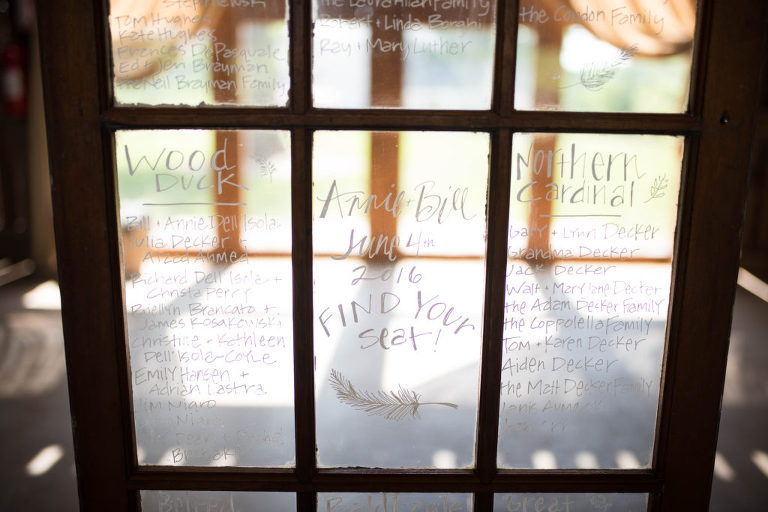 Tom Hughes
Kate Hughes
Frances DePasquale
Ed + Jen Brayman
the Neil Brayman Family
the Laura Allan Family
Robert + Linda Barahi
Ray + Mary Luther
the Condon Family
Wood
Duck
Bill + Annie Dell'Isola
Julia Decker +
Ahmed
Richard Dell'Isola +
Christa Perry
Brancato +
James Kosakowski
Christine + Kathleen
Dell'Isola-Coyle
Emily Hansen +
Adrian Lastra
Jim Nigro
Nigro
Annie + Bill
June 4th
2016
FIND YOUR
seat!
Northern
Cardinal
Gary + Lynn Decker
Grandma Decker
Jack Decker
Walt + Mary Jane Decker
the Adam Decker Family
the Coppolella Family
Tom + Karen Decker
Aiden Decker
the Matt Decker Family
Great